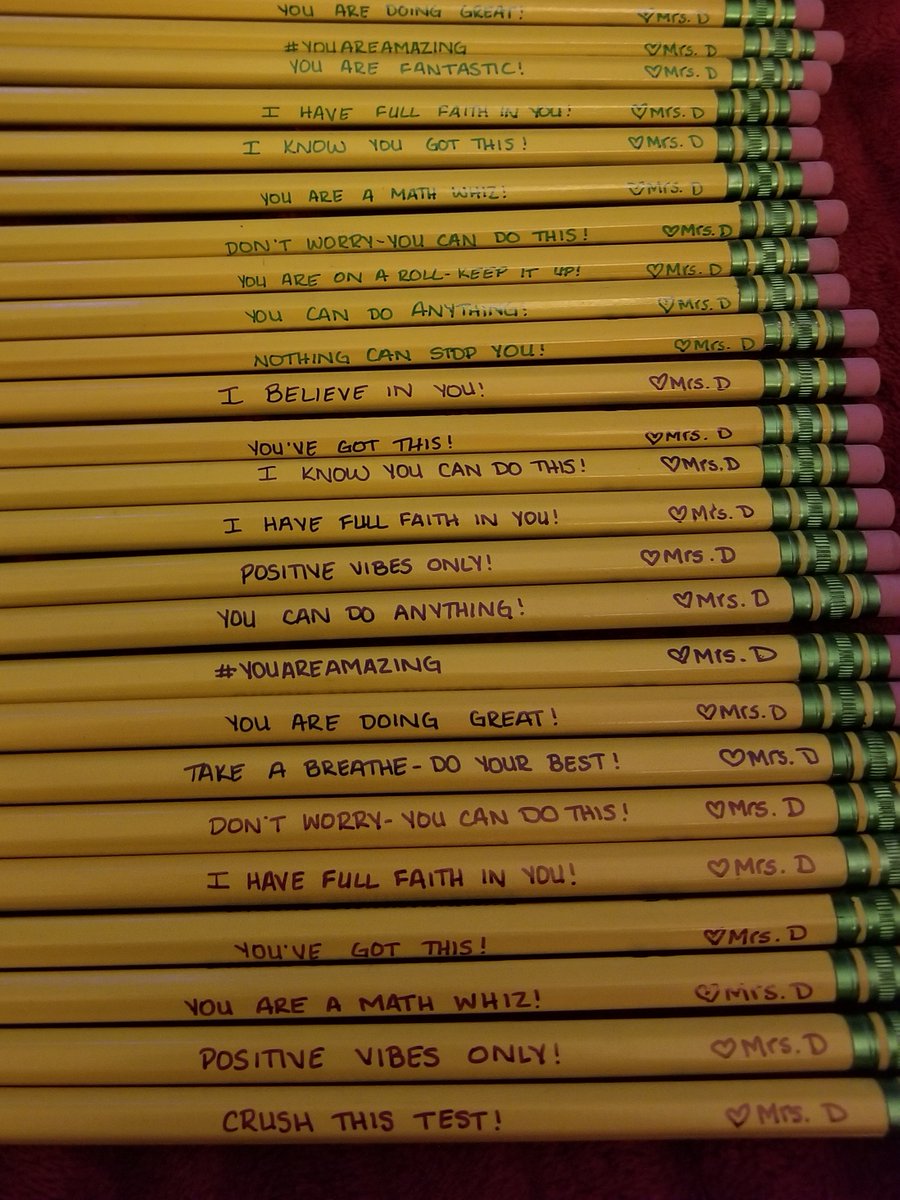 YOU ARE DOING GREAT! ♡Mrs. D
#YOUAREAMAZING ♡Mrs. D
YOU ARE FANTASTIC! ♡Mrs. D
I HAVE FULL FAITH IN YOU! ♡Mrs. D
I KNOW YOU GOT THIS! ♡Mrs. D
YOU ARE A MATH WHIZ! ♡Mrs. D
DON'T WORRY-YOU CAN DO THIS! ♡Mrs. D
YOU ARE ON A ROLL-KEEP IT UP! ♡Mrs. D
YOU CAN DO ANYTHING! ♡Mrs. D
NOTHING CAN STOP YOU! ♡Mrs. D
I BELIEVE IN YOU! ♡Mrs. D
YOU'VE GOT THIS! ♡Mrs. D
I KNOW YOU CAN DO THIS! ♡Mrs. D
I HAVE FULL FAITH IN YOU! ♡Mrs. D
POSITIVE VIBES ONLY! ♡Mrs. D
YOU CAN DO ANYTHING! ♡Mrs. D
#YOUAREAMAZING ♡Mrs. D
YOU ARE DOING GREAT! ♡Mrs. D
TAKE A BREATHE-DO YOUR BEST! ♡Mrs. D
DON'T WORRY-YOU CAN DO THIS! ♡Mrs. D
I HAVE FULL FAITH IN YOU! ♡Mrs. D
YOU'VE GOT THIS! ♡Mrs. D
YOU ARE A MATH WHIZ! ♡Mrs. D
POSITIVE VIBES ONLY! ♡Mrs. D
CRUSH THIS TEST! ♡Mrs. D